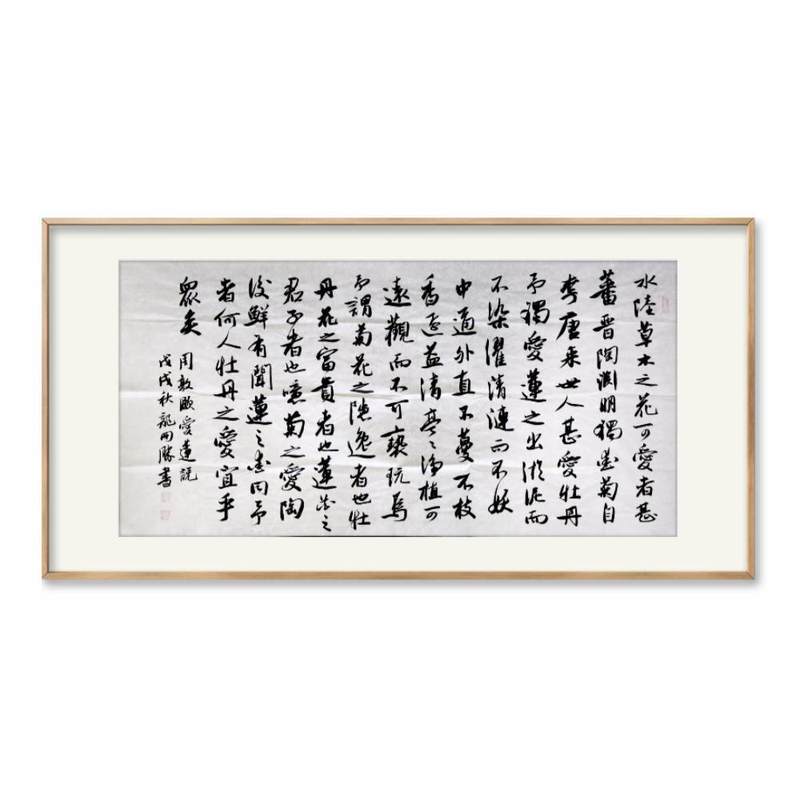 水陸草木之花可愛者甚
蕃晋陶淵明獨愛菊自
李唐来世人甚愛牡丹
予獨愛蓮之出淤泥而
不染濯清漣而不妖
中通外直不蔓不枝
香遠益清亭亭淨植可
遠觀而不可褻玩焉
予謂菊花之隱逸者也牡
丹花之富貴者也蓮花之
君子者也噫菊之愛陶
後鮮有聞蓮之愛同予
者何人牡丹之愛宜乎
眾矣
周敦頤愛蓮説
戊戌秋龍開勝書